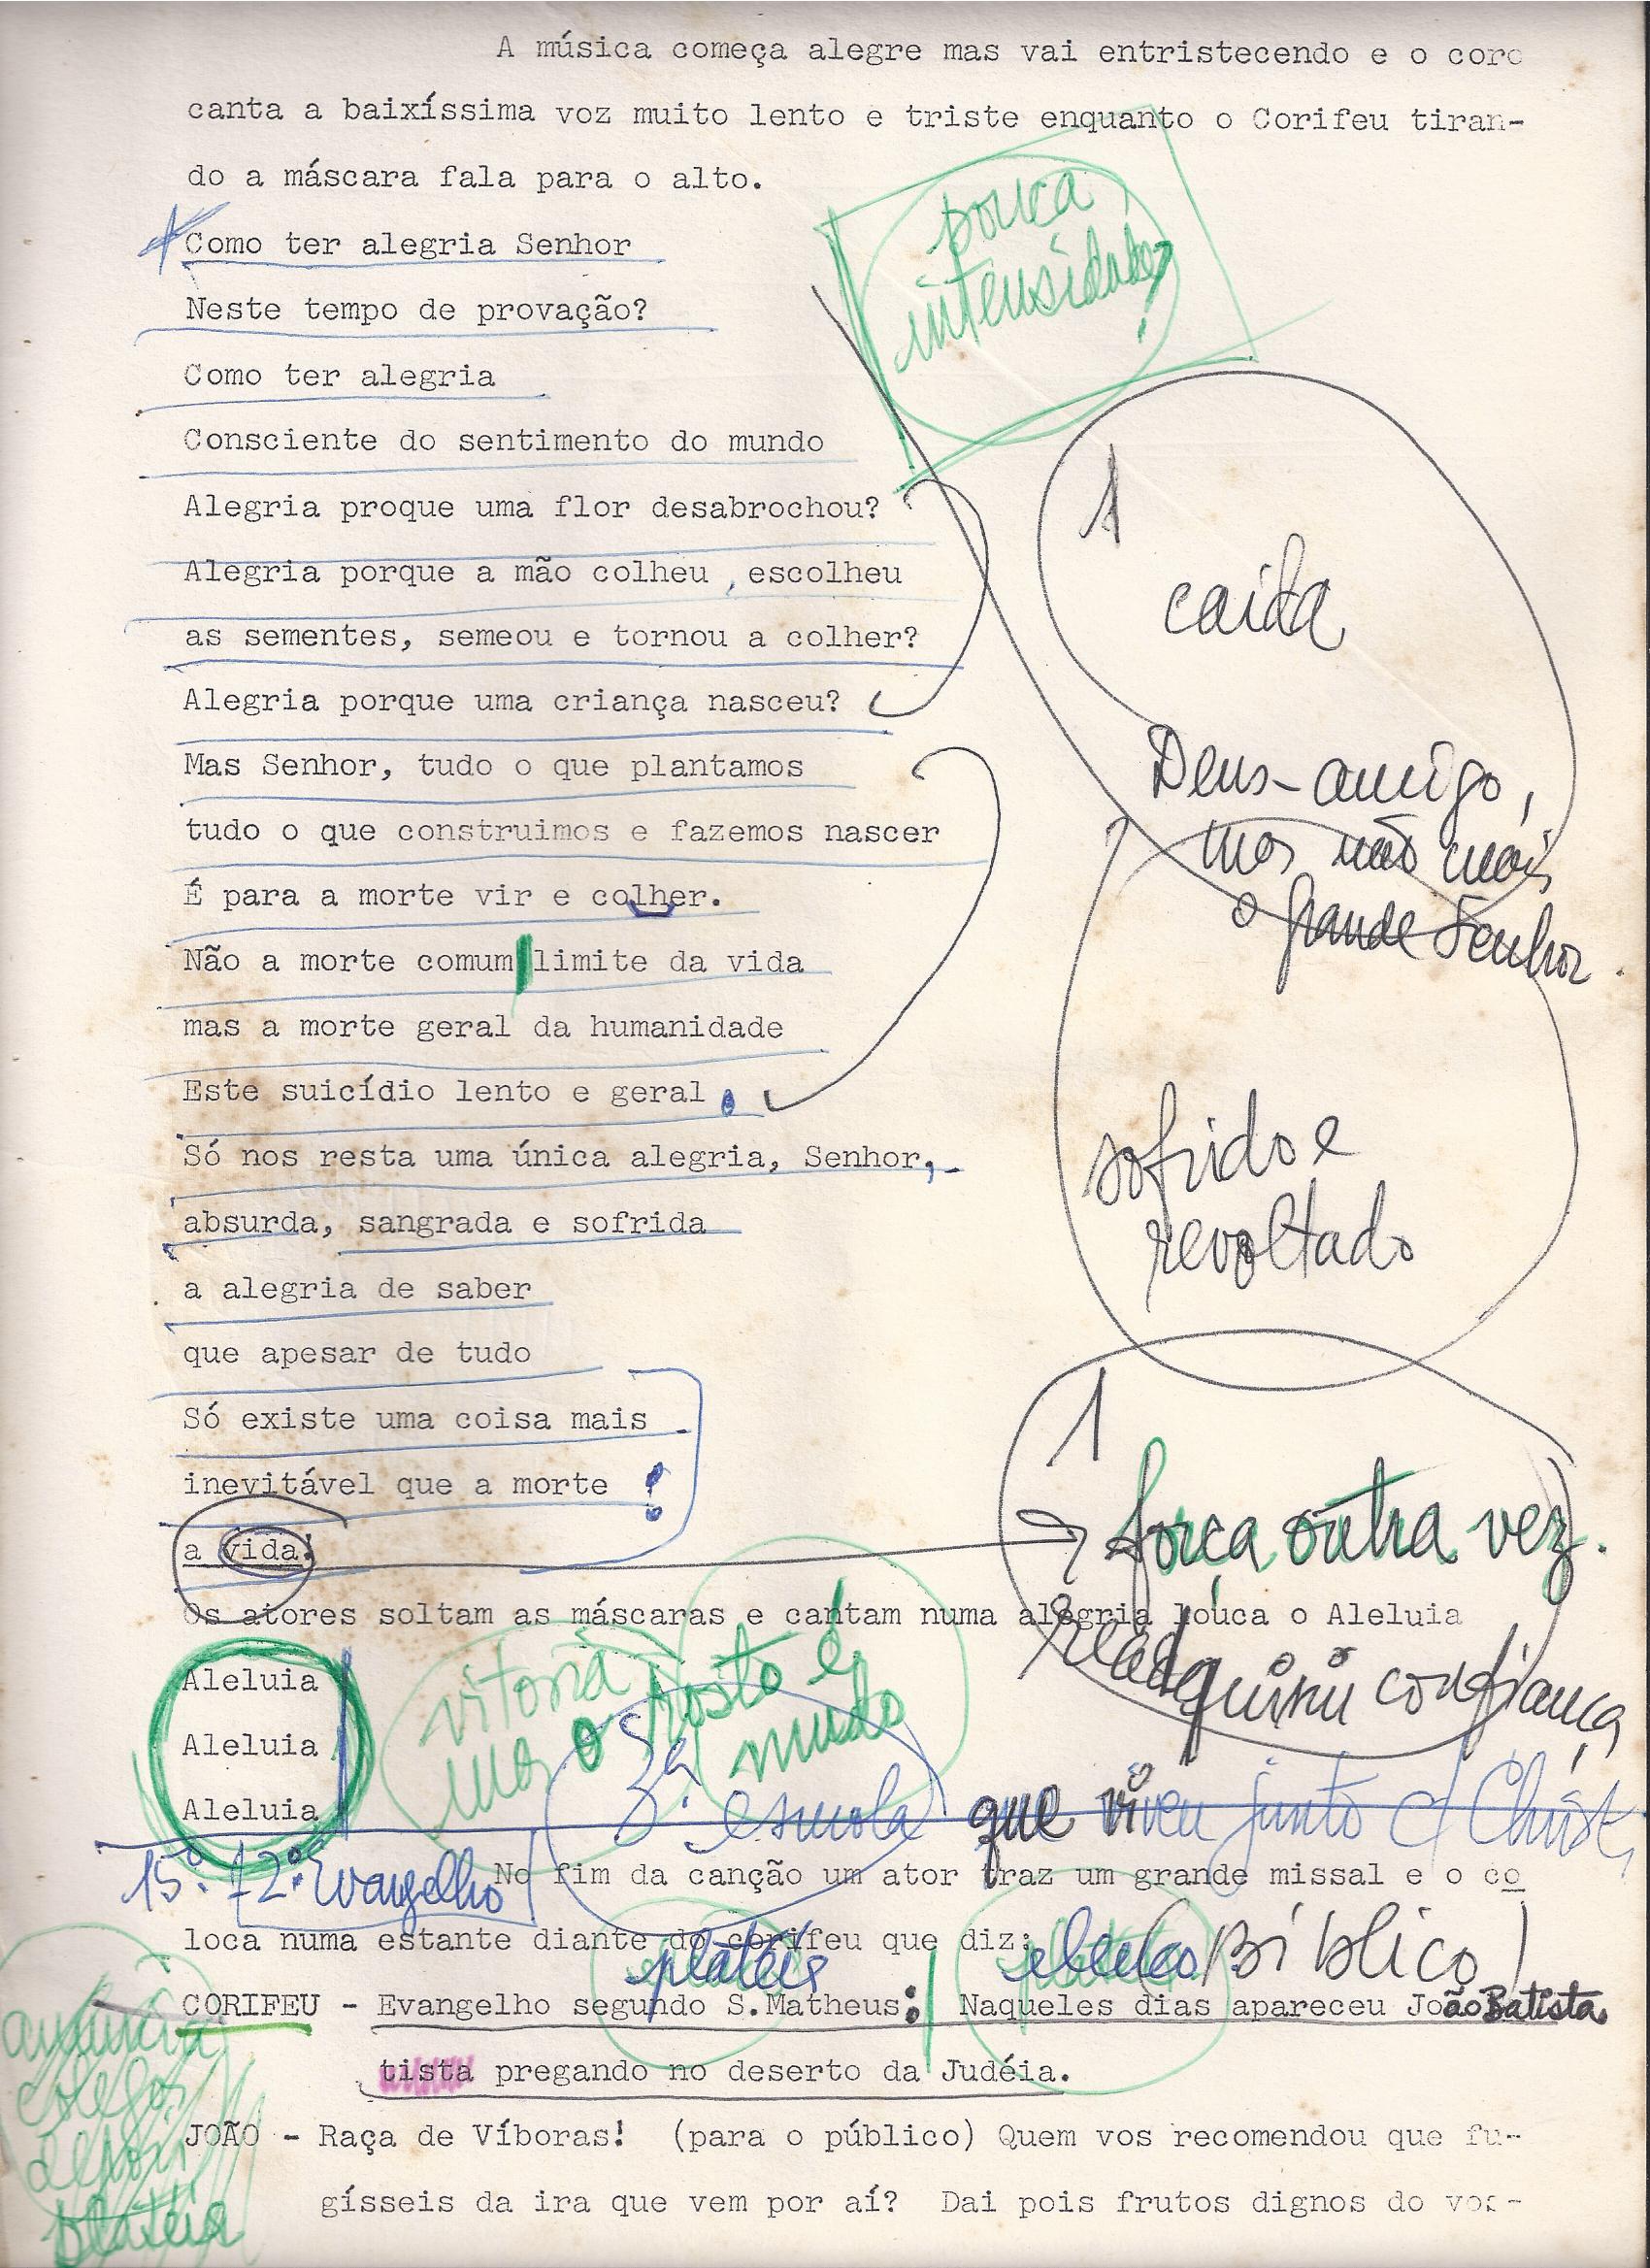 A música começa alegre mas vai entristecendo e o coro
canta a baixíssima voz muito lento e triste enquanto o Corifeu tiran-
do a máscara fala para o alto.
pouca
intensidade?
!
Como ter alegria Senhor
Neste tempo de provação?
Como ter alegria
Consciente do sentimento do mundo
Alegria proque uma flor desabrochou?
1
caída
Alegria porque a mão colheu , escolheu
as sementes, semeou e tornou a colher?
Alegria porque uma criança nasceu?
Mas Senhor, tudo o que plantamos
tudo o que construimos e fazemos nascer
Deus-amigo,
mas não mais
o grande Senhor.
É para a morte vir e colher.
Não a morte comum limite da vida
mas a morte geral da humanidade
Este suicídio lento e geral.
Só nos resta uma única alegria, Senhor,
absurda, sangrada e sofrida
sofrido e
revoltado
a alegria de saber
que apesar de tudo
Só existe uma coisa mais
inevitável que a morte !
a vida!
1
força outra vez.
readquiriu confiança
Os atores soltam as máscaras e cantam numa alegria louca o Aleluia
Aleluia
Aleluia
Aleluia
vitória
mas o rosto é
mudo
3ª escola que viveu junto c/ Christ
15º. 12º. Evangelho
No fim da canção um ator traz um grande missal e o co
loca numa estante diante do corifeu que diz:
platéia
elenco (Bíblico)
CORIFEU - Evangelho segundo S.Matheus: Naqueles dias apareceu João Batista
tista pregando no deserto da Judéia.
anuncia
colegas
depois
platéia
JOÃO - Raça de Víboras! (para o público) Quem vos recomendou que fu-
gísseis da ira que vem por aí? Dai pois frutos dignos do vos-